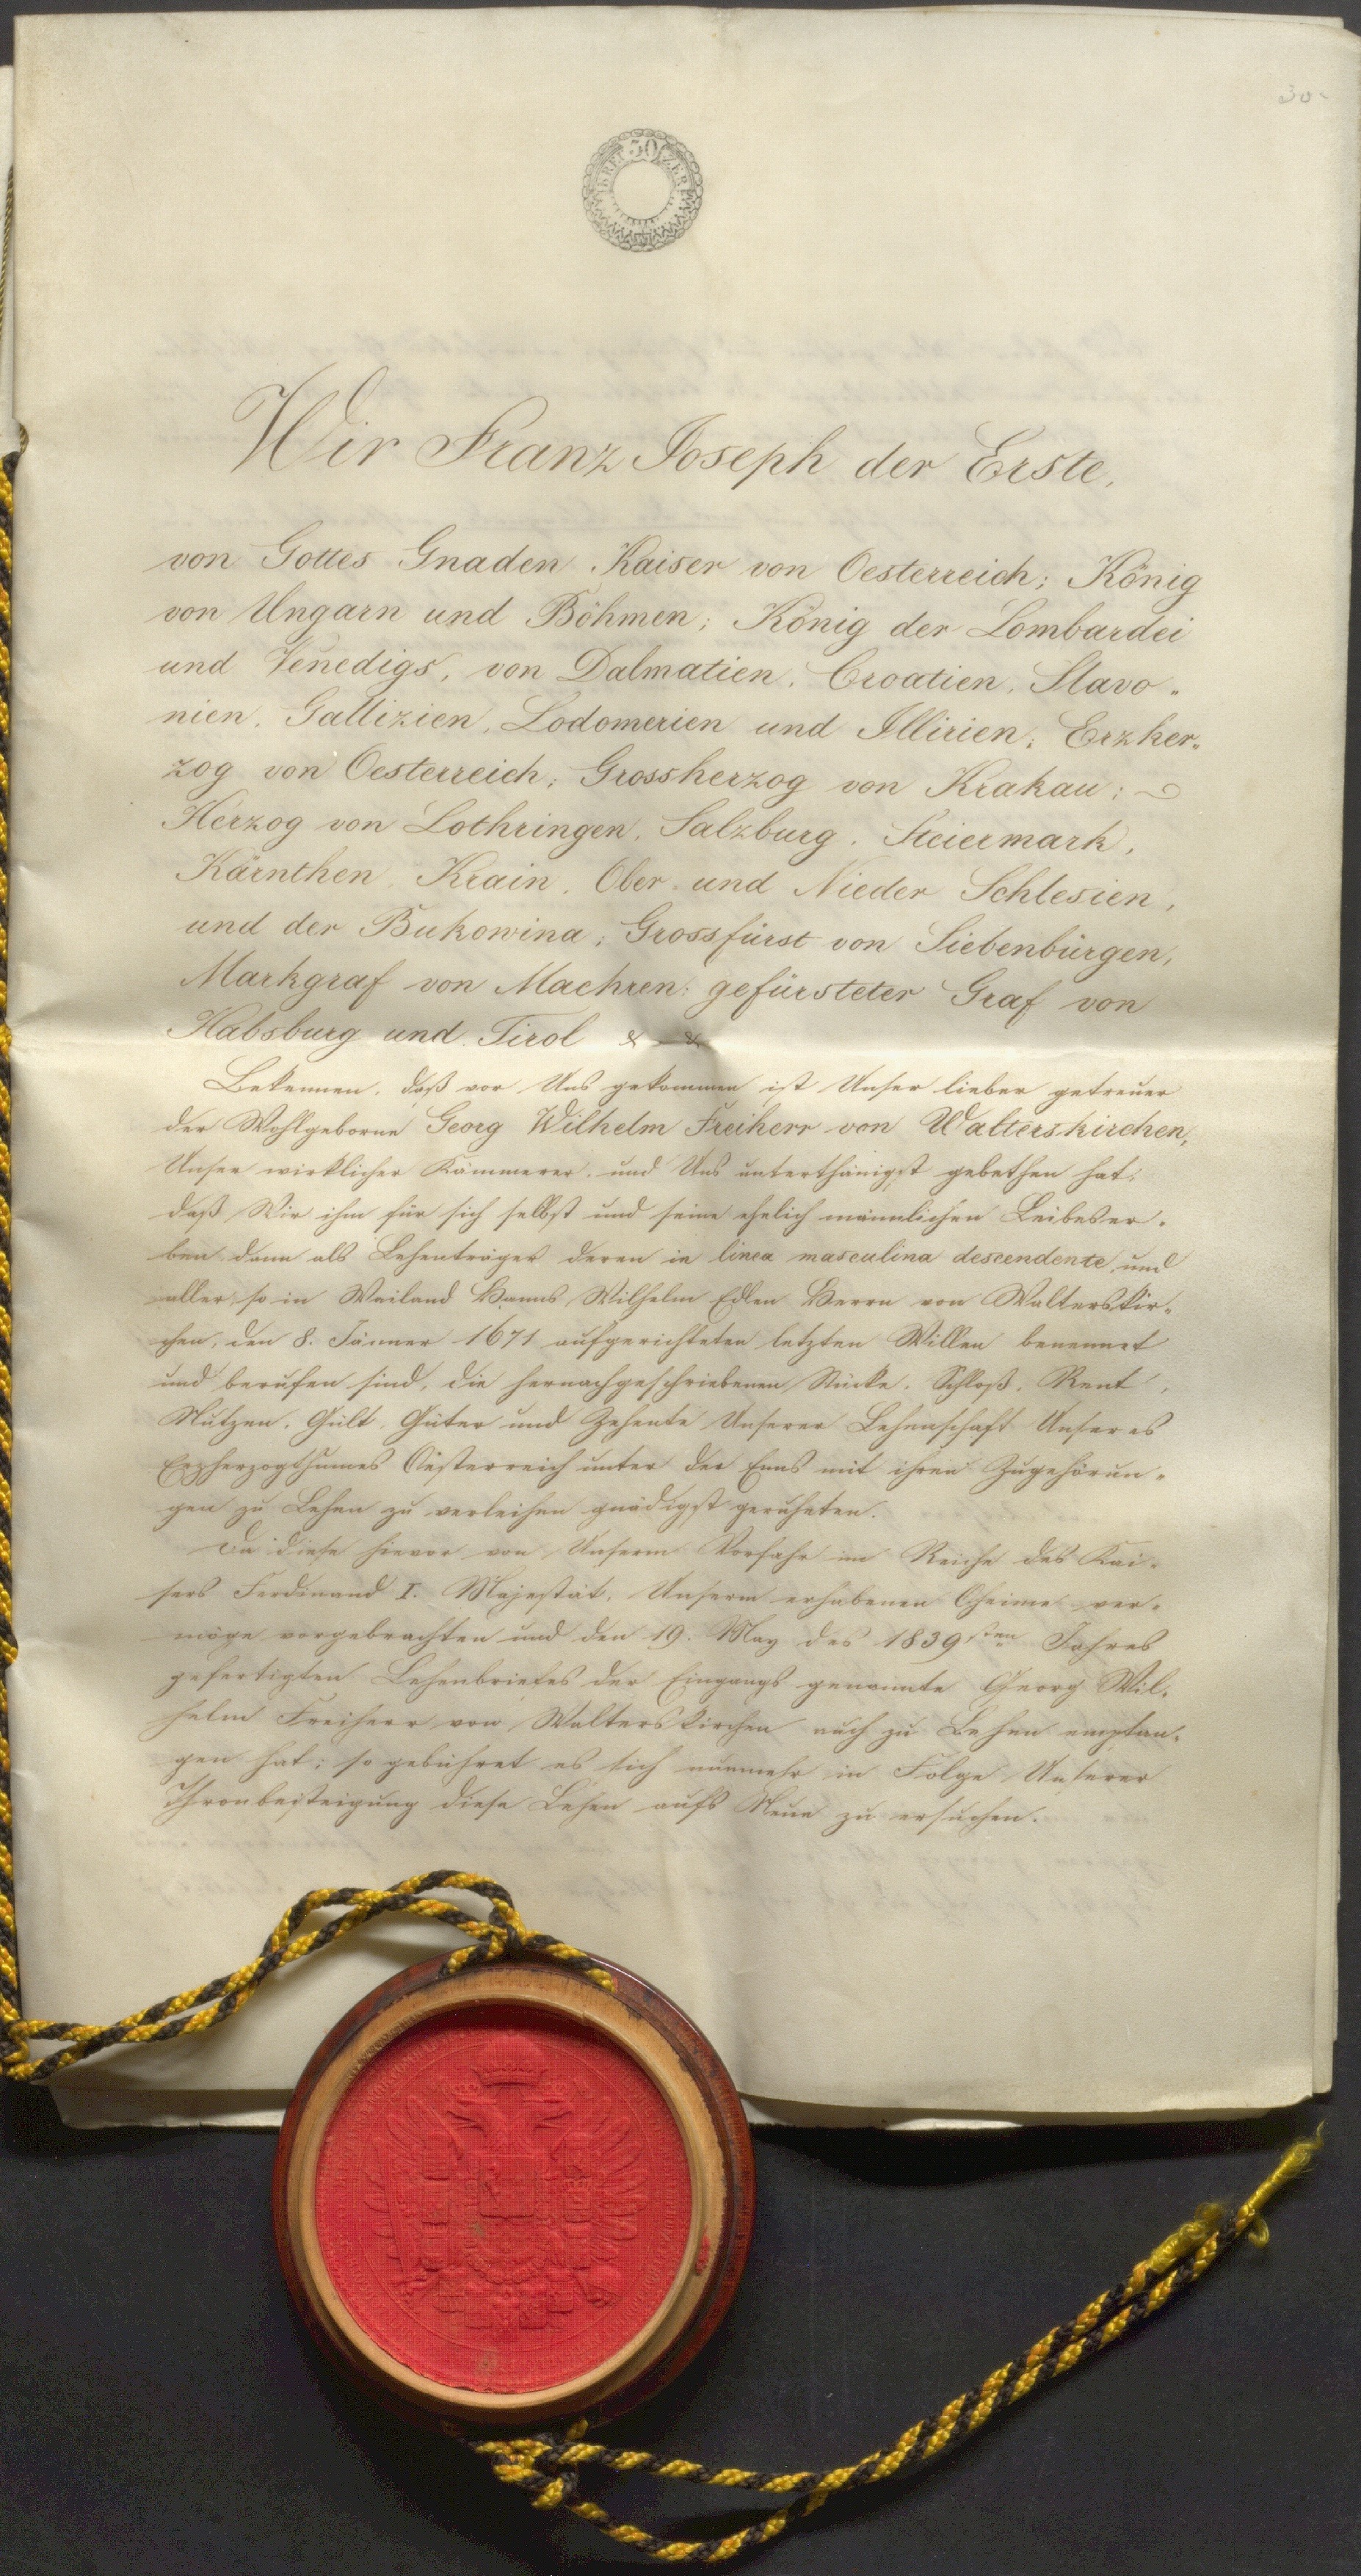 30
30 KREUZER
Wir Franz Joseph der Erste,
von Gottes Gnaden Kaiser von Oesterreich; König
von Ungarn und Böhmen; König der Lombardei
und Venedigs, von Dalmatien, Croatien, Slavo„
nien, Gallizien, Lodomerien und Illirien; Erzher„
zog von Oesterreich; Grossherzog von Krakau;
Herzog von Lothringen, Salzburg, Steiermark,
Kärnthen, Krain, Ober- und Nieder Schlesien,
und der Bukowina; Grossfürst von Siebenbürgen,
Markgraf von Maehren; gefürsteter Graf von
Habsburg und Tirol & &
Bekennen, daß vor Uns gekommen ist Unser lieber getreuer
der Wohlgeborne Georg Wilhelm Freiherr von Walterskirchen,
Unser wirklicher Kämmerer, und Uns unterthänigst gebethen hat;
daß Wir ihm für sich selbst und seine ehelich männlichen Leibeser„
ben dann als Lehenträger deren in linea masculina descendente, und
aller, so in Weiland Hanns Wilhelm Edlen Herrn von Walterskir„
chen, den 8. Jänner 1671 aufgerichteten letzten Willen benennet
und berufen sind, die hernachgeschriebenen Stücke, Schloß, Rent,
Nutzen, Gült, Güter und Zehente Unserer Lehenschaft Unseres
Erzherzogthumes Oesterreich unter der Enns mit ihren Zugehörun„
gen zu Lehen zu verleihen gnädigst geruheten.
Da diese hievor von Unserm Vorfahr im Reiche des Kai„
sers Ferdinand I. Majestät, Unserm erhabenen Oheime ver„
möge vorgebrachten und den 19. May des 1839sten Jahres
gefertigten Lehenbriefes der Eingangs genannte Georg Wil„
helm Freiherr von Walterskirchen auch zu Lehen empfan„
gen hat; so gebühret es sich nunmehr in Folge Unserer
Thronbesteigung diese Lehen aufs Neue zu ersuchen.